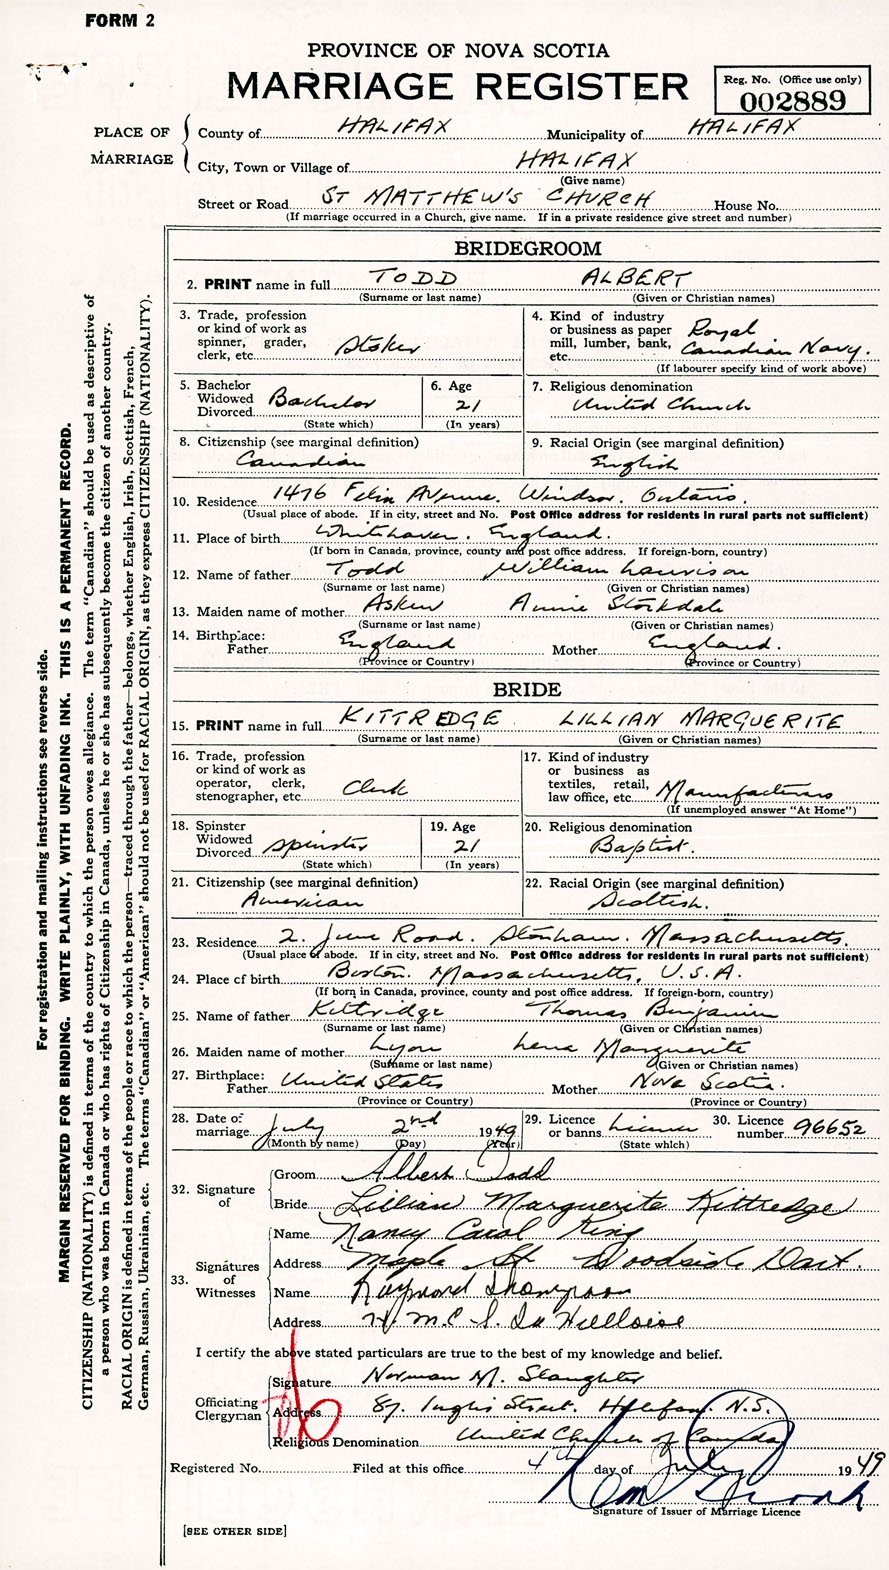 FORM 2
PROVINCE OF NOVA SCOTIA
MARRIAGE REGISTER
Reg. No. (Office use only)
002889
PLACE OF MARRIAGE
County of HALIFAX Municipality of HALIFAX
City, Town or Village of HALIFAX
(Give name)
Street or Road ST MATTHEW'S CHURCH House No.
(If marriage occurred in a Church, give name. If in a private residence give street and number)
BRIDEGROOM
2. PRINT name in full TODD ALBERT
(Surname or last name) (Given or Christian names)
3. Trade, profession or kind of work as spinner, grader, clerk, etc. Stoker
4. Kind of industry or business as paper mill, lumber, bank, etc. Royal Canadian Navy.
(If labourer specify kind of work above)
5. Bachelor Widowed Divorced Bachelor
(State which)
6. Age 21
(In years)
7. Religious denomination
United Church
8. Citizenship (see marginal definition)
Canadian
9. Racial Origin (see marginal definition)
English
10. Residence 1476 Felix Avenue. Windsor. Ontario.
(Usual place of abode. If in city, street and No. Post Office address for residents in rural parts not sufficient)
11. Place of birth Whitehaven. England.
(If born in Canada, province, county and post office address. If foreign-born, country)
12. Name of father Todd William
(Surname or last name) (Given or Christian names)
13. Maiden name of mother Askew Annie Stockdale
(Surname or last name) (Given or Christian names)
14. Birthplace:
Father England Mother England.
(Province or Country) (Province or Country)
BRIDE
15. PRINT name in full KITTREDGE LILLIAN MARGUERITE
(Surname or last name) (Given or Christian names)
16. Trade, profession or kind of work as operator, clerk, stenographer, etc. Clerk
17. Kind of industry or business as textiles, retail, law office, etc. Manufacturers
(If unemployed answer "At Home")
18. Spinster Widowed Divorced Spinster
(State which)
19. Age 21
(In years)
20. Religious denomination
Baptist.
21. Citizenship (see marginal definition)
American
22. Racial Origin (see marginal definition)
Scottish.
23. Residence 2. June Road. Stoneham. Massachusetts.
(Usual place of abode. If in city, street and No. Post Office address for residents in rural parts not sufficient)
24. Place of birth Boston. Massachusetts, U.S.A.
(If born in Canada, province, county and post office address. If foreign-born, country)
25. Name of father Kittridge Thomas Benjamin
(Surname or last name) (Given or Christian names)
26. Maiden name of mother Lyon Lena Marguerite
(Surname or last name) (Given or Christian names)
27. Birthplace:
Father United States Mother Nova Scotia.
(Province or Country) (Province or Country)
28. Date of marriage July 2nd 1949
(Month by name) (Day) (Year)
29. Licence or banns License
(State which)
30. Licence number 96652
32. Signature of
Groom Albert Todd
Bride Lillian Marguerite Kittredge
33. Signatures of Witnesses
Name Nancy Carol King
Address Maple St Woodside Dart.
Name Raymond Thompson
Address H.M.C.S. La Hulloise
I certify the above stated particulars are true to the best of my knowledge and belief.
Officiating Clergyman
Signature Norman M. Slaughter
Address 87. Inglis Street. Halifax. N.S.
Religious Denomination United Church of Canada
Registered No. Filed at this office 4th day of July 1949
Signature of Issuer of Marriage Licence
[SEE OTHER SIDE]
For registration and mailing instructions see reverse side.
MARGIN RESERVED FOR BINDING. WRITE PLAINLY, WITH UNFADING INK. THIS IS A PERMANENT RECORD.
CITIZENSHIP (NATIONALITY) is defined in terms of the country to which the person owes allegiance. The term "Canadian" should be used as descriptive of
a person who was born in Canada or who has rights of Citizenship in Canada, unless he or she has subsequently become the citizen of another country.
RACIAL ORIGIN is defined in terms of the people or race to which the person—traced through the father—belongs, whether English, Irish, Scottish, French,
German, Russian, Ukrainian, etc. The terms "Canadian" or "American" should not be used for RACIAL ORIGIN, as they express CITIZENSHIP (NATIONALITY).